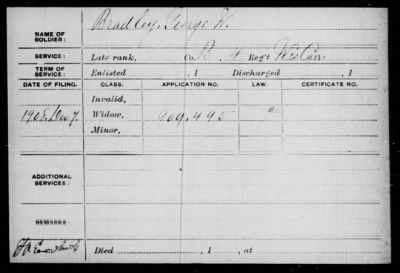 NAME OF SOLDIER: Bradley, George W.
SERVICE: Late rank, Co. B, 4 Reg't Wis Cav
TERM OF SERVICE: Enlisted , 1 Discharged , 1
DATE OF FILING. CLASS. APPLICATION NO. LAW. CERTIFICATE NO.
Invalid,
1908, Dec 7. Widow, 909,495
Minor,
ADDITIONAL SERVICES:
REMARKS:
Died , 1 , at